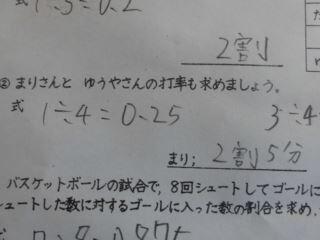 1÷5=0.2
2割
② まりさんと ゆうやさんの打率も求めましょう。
式 1÷4=0.25
3÷4
まり; 2割5分
バスケットボールの試合で, 8回シュートしてゴールに
シュートした数に対するゴールに入った数の割合を求め,